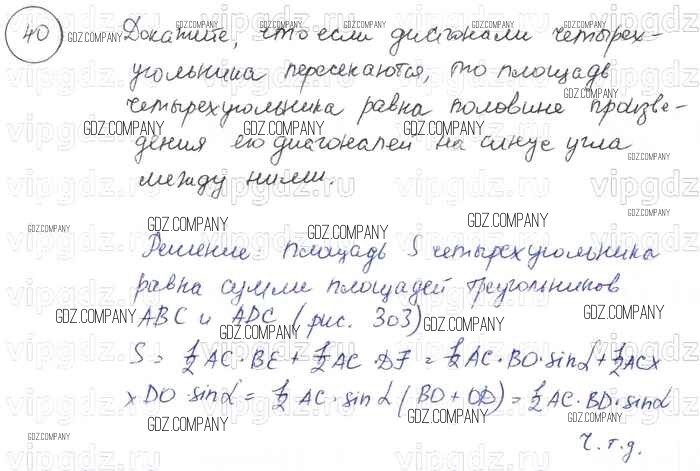 40 Докажите, что если диагонали четырех-
угольника пересекаются, то площадь
четырехугольника равна половине произве-
дения его диагоналей на синус угла
между ними.
Решение: площадь S четырехугольника
равна сумме площадей треугольников
ABC и ADC (рис. 303)
S = 1/2 AC · BE + 1/2 AC · DF = 1/2 AC · BO · sinα + 1/2 AC x
x DO · sinα = 1/2 AC · sinα (BO + OD) = 1/2 AC · BD · sinα
Ч.т.д.
GDZ.COMPANY
vipgdz.ru